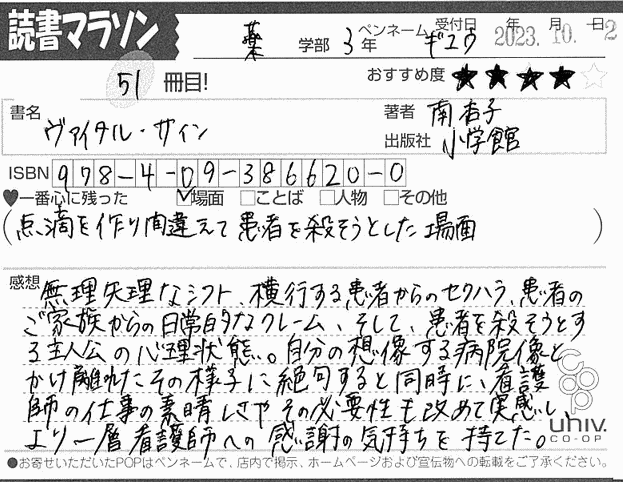 読書マラソン
薬 学部 3年 ペンネーム ギユウ 受付日 年 月 日
2023.10.-2
51 冊目! おすすめ度 ★★★★☆
書名 著者 南杏子
ヴァイタル・サイン 出版社 小学館
ISBN 978-4-09-386620-0
♥一番心に残った ☑場面 □ことば □人物 □その他
(点滴を作り間違えて患者を殺そうとした場面)
感想 無理矢理なシフト、横行する患者からのセクハラ、患者の
ご家族からの日常的なクレーム、そして、患者を殺そうとす
る主人公の心理状態。自分の想像する病院像と
かけ離れたその様子に絶句すると同時に、看護
師の仕事の素晴しさやその必要性も改めて実感し、
より一層看護師への感謝の気持ちを持てた。
univ.
CO-OP
●お寄せいただいたPOPはペンネームで、店内で掲示、ホームページおよび宣伝物への転載をご了承ください。